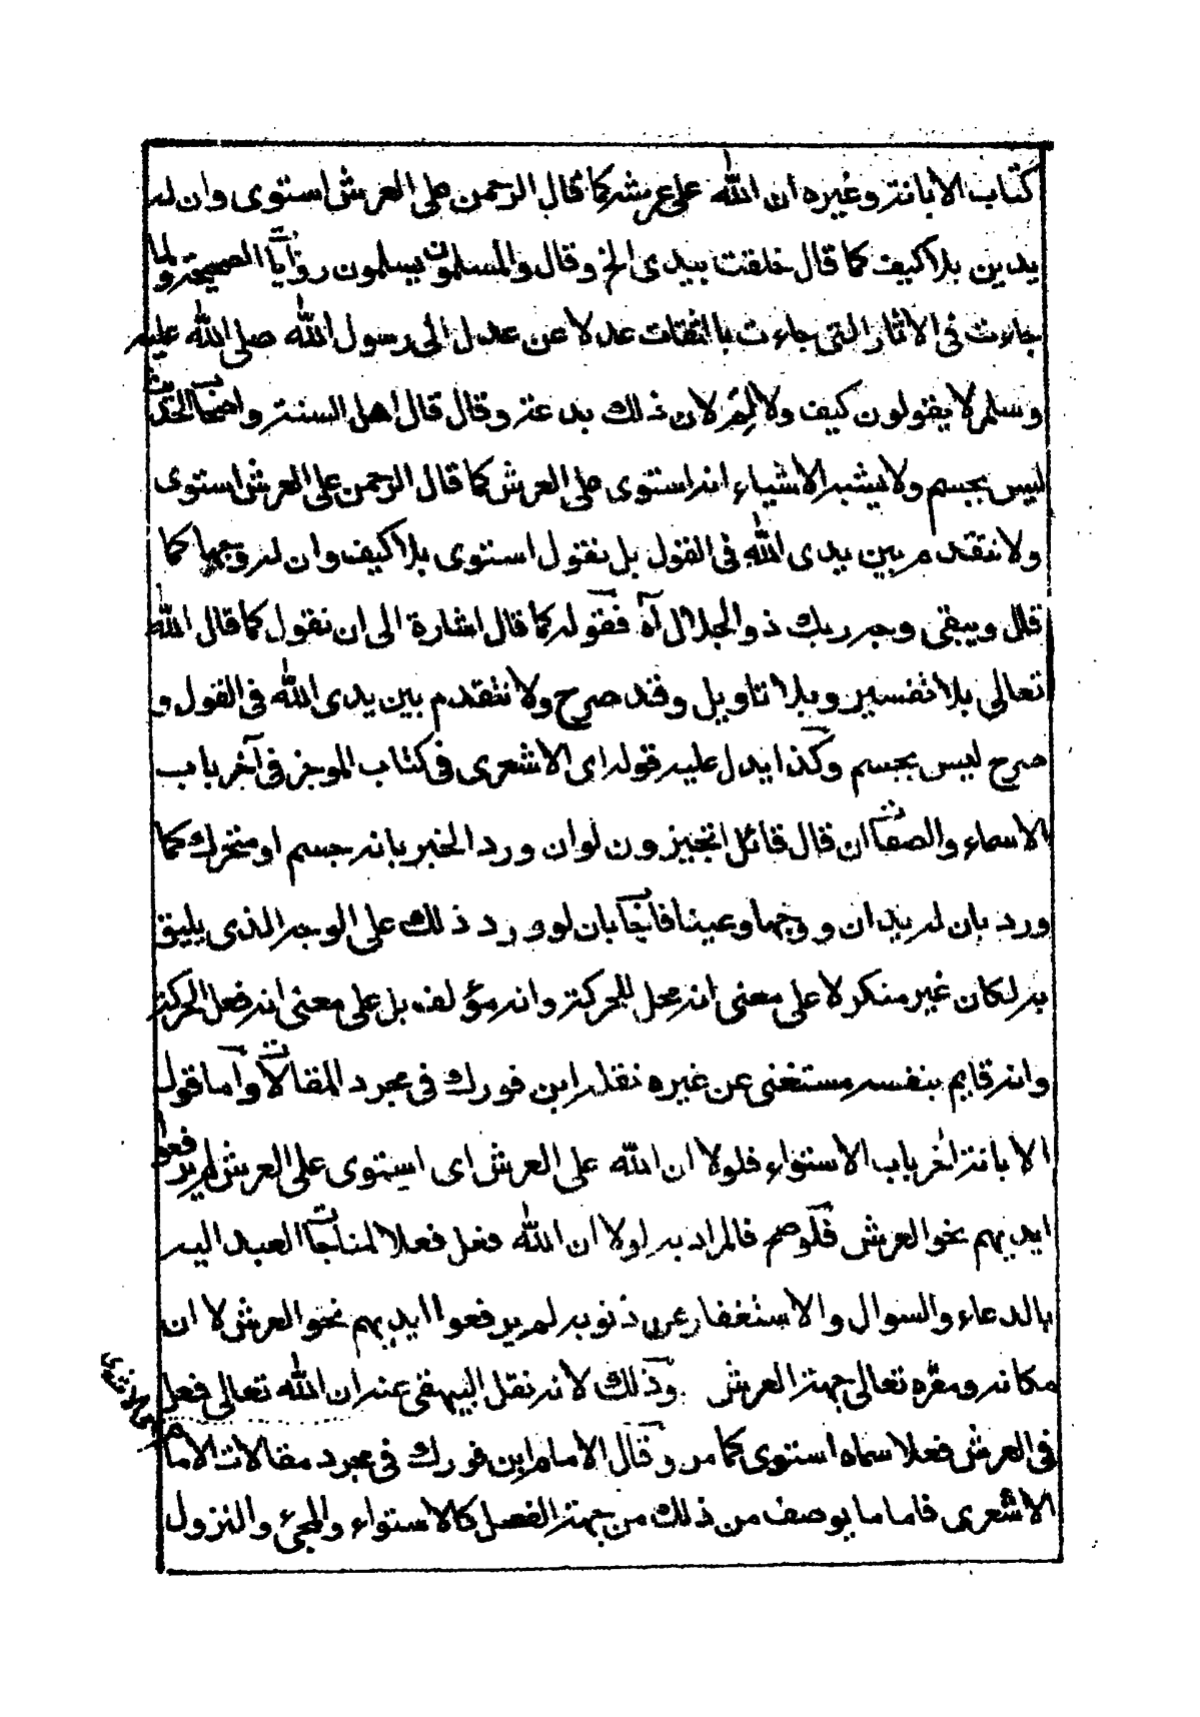 كتاب الابانة وغيره ان الله على عرشه كما قال الرحمن على العرش استوى وان له
يدين بلا كيف كما قال خلقت بيدى الخ وقال والمسلمون يسلمون روايات الصحيحة ولما
جاءت فى الاثار التى جاءت بالثقات عدلا عن عدل الى رسول الله صلى الله عليه
وسلم لا يقولون كيف ولا لم لان ذلك بدعة وقال قال اهل السنة واصحاب الحديث
ليس بجسم ولا يشبه الاشياء انه استوى على العرش كما قال الرحمن على العرش استوى
ولا نتقدم بين يدى الله فى القول بل نقول استوى بلا كيف وان له وجها كما
قال ويبقى وجه ربك ذو الجلال آه فقوله كما قال اشارة الى ان نقول كما قال الله
تعالى بلا تفسير وبلا تاويل وقد صرح ولا نتقدم بين يدى الله فى القول و
صرح ليس بجسم وكذا يدل عليه قوله اى الاشعرى فى كتاب الموجز فى آخر باب
الاسماء والصفات ان قال قائل اتجيزون لو ان ورد الخبر بانه جسم او متحرك كما
ورد بان له يدان ووجها وعينا فاجاب بان لو ورد ذلك على الوجه الذى يليق
به لكان غير منكر لا على معنى انه محل للحركة وانه مؤلف بل على معنى انه فعل الحركة
وانه قايم بنفسه مستغنى عن غيره نقله ابن فورك فى مجرد المقالات واما قول
الابانة آخر باب الاستواء فلولا ان الله على العرش اى استوى على العرش لم يرفعوا
ايديهم نحو العرش فالمراد به لولا ان الله فعل فعلا لمناجات العبد اليه
بالدعاء والسوال والاستغفار عن ذنوبه لم يرفعوا ايديهم نحو العرش لا ان
مكانه ومقره تعالى جهة العرش وذلك لانه نقل البيهقى عنه ان الله تعالى فعل
فى العرش فعلا سماه استوى كما مر وقال الامام ابن فورك فى مجرد مقالات الامام
الاشعرى فاما ما يوصف من ذلك من جهة الفعل كالاستواء والمجئ والنزول